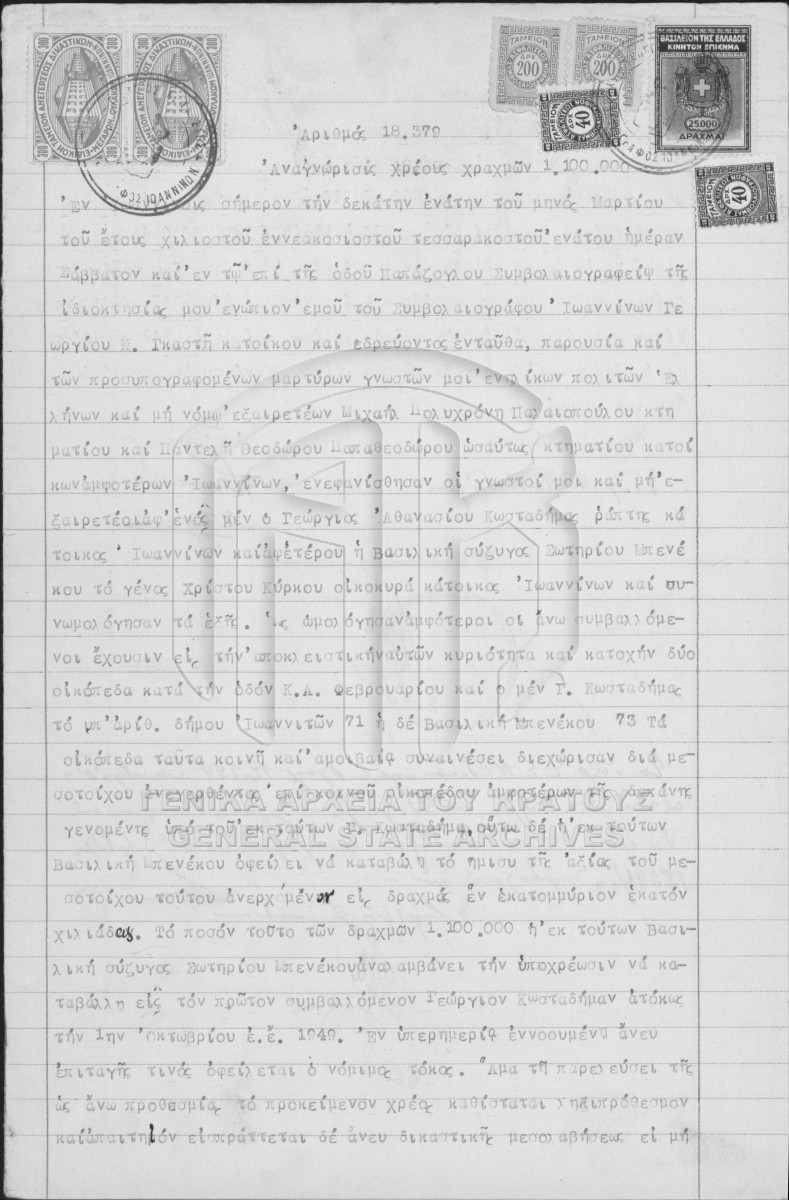 ΒΑΣΙΛΕΙΟΝ ΤΗΣ ΕΛΛΑΔΟΣ
ΚΙΝΗΤΟΝ ΕΠΙΣΗΜΑ
25.000
ΔΡΑΧΜΑΙ
ΤΑΜΕΙΟΝ
200
ΤΑΜΕΙΟΝ
200
ΤΑΜΕΙΟΝ
40
ΤΑΜΕΙΟΝ
40
300 300
300 300
Ἀριθμός 18.379
Ἀναγνώρισις χρέους χραχμῶν 1.100.000
Ἐν σήμερον τήν δεκάτην ἐνάτην τοῦ μηνός Μαρτίου
τοῦ ἔτους χιλιοστοῦ ἐννεακοσιοστοῦ τεσσαρακοστοῦ ἐνάτου ἡμέραν
Σάββατον καί ἐν τῷ ἐπί τῆς ὁδοῦ Παπάζογλου Συμβολαιογραφείῳ τῆς
ἰδιοκτησίας μου ἐνώπιον ἐμοῦ τοῦ Συμβολαιογράφου Ἰωαννίνων Γε
ωργίου Ν. Γκαστῆ κατοίκου καί ἑδρεύοντος ἐνταῦθα, παρουσία καί
τῶν προσυπογραφομένων μαρτύρων γνωστῶν μοι ἐνηλίκων πολιτῶν Ἑλ
λήνων καί μή νόμῳ ἐξαιρετέων Μιχαήλ Πολυχρόνη Παλαιοπούλου κτη
ματίου καί Παντελῆ Θεοδώρου Παπαθεοδώρου ὡσαύτως κτηματίου κατοί
κωνἀμφοτέρων Ἰωαννίνων, ἐνεφανίσθησαν οἱ γνωστοί μοι καί μή ἐ-
ξαιρετέοιἀφ' ἑνός μέν ὁ Γεώργιος Ἀθανασίου Κωσταδήμας ράπτης κά
τοικος Ἰωαννίνων καίἀφἑτέρου ἡ Βασιλική σύζυγος Σωτηρίου Μπενέ
κου τό γένος Χρίστου Κύρκου οἰκοκυρά κάτοικος Ἰωαννίνων καί συ-
νωμολόγησαν τά ἑξῆς. Ὡς ὡμολόγησανἀμφότεροι οἱ ἄνω συμβαλλόμε-
νοι ἔχουσιν εἰς τήν ἀποκλειστικήναὐτῶν κυριότητα καί κατοχήν δύο
οἰκόπεδα κατά τήν ὁδόν Κ.Α. Φεβρουαρίου καί ὁ μέν Γ. Κωσταδήμας
τό ὑπ' ἀριθ. δήμου Ἰωαννιτῶν 71 ἡ δέ Βασιλική Μπενέκου 73 Τά
οἰκόπεδα ταῦτα κοινῆ καί ἀμοιβαίᾳ συναινέσει διεχώρισαν διά με-
σοτοίχου ἀνεγερθέντος ἐπί κοινοῦ οἰκοπέδου ἀμφοτέρων τῆς δαπάνης
γενομένης ὑπό τοῦ ἐκ τούτων Γ. Κωσταδήμα, οὕτω δέ ἡ ἐκ τούτων
Βασιλική Μπενέκου ὀφείλει νά καταβάλη τό ἥμισυ τῆς ἀξίας τοῦ με-
σοτοίχου τούτου ἀνερχόμενον εἰς δραχμάς ἕν ἑκατομμύριον ἑκατόν
χιλιάδας. Τό ποσόν τοῦτο τῶν δραχμῶν 1.100.000 ἡ ἐκ τούτων Βασι-
λική σύζυγος Σωτηρίου Μπενέκουἀναλαμβάνει τήν ὑποχρέωσιν νά κα-
ταβάλλη εἰς τόν πρῶτον συμβαλλόμενον Γεώργιον Κωσταδήμαν ἀτόκως
τήν 1ην Ὀκτωβρίου ἐ.ἔ. 1949. Ἐν ὑπερημερίᾳ ἐννοουμένη ἄνευ
ἐπιταγῆς τινός ὀφείλεται ὁ νόμιμος τόκος. Ἅμα τῆ παρελεύσει τῆς
ὡς ἄνω προθεσμίας τό προκείμενον χρέος καθίσταται ληξιπρόθεσμον
καίἀπαιτητόν εἰσπράττεται δέ ἄνευ δικαστικῆς μεσολαβήσεως εἰ μή
ΓΕΝΙΚΑ ΑΡΧΕΙΑ ΤΟΥ ΚΡΑΤΟΥΣ
GENERAL STATE ARCHIVES